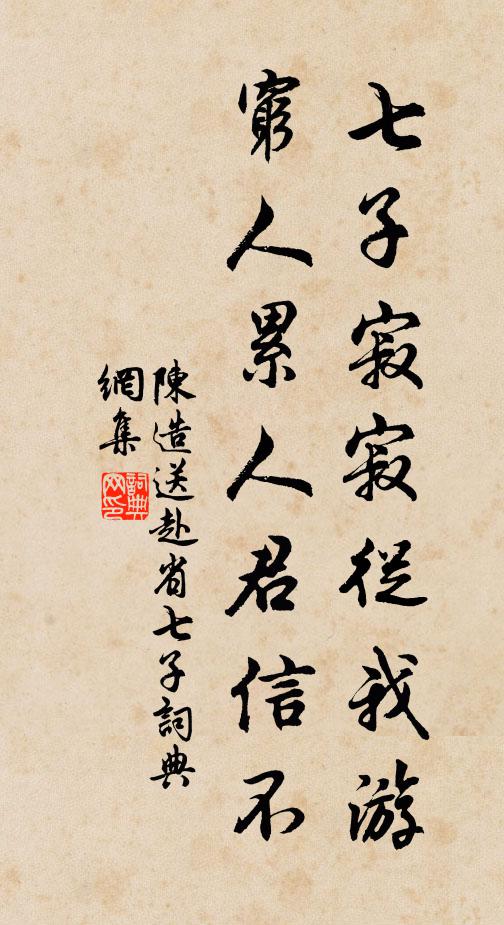 七子寂寂從我游
窮人累人君信不
陳造送赴省七子詞典
網集
詞典網印